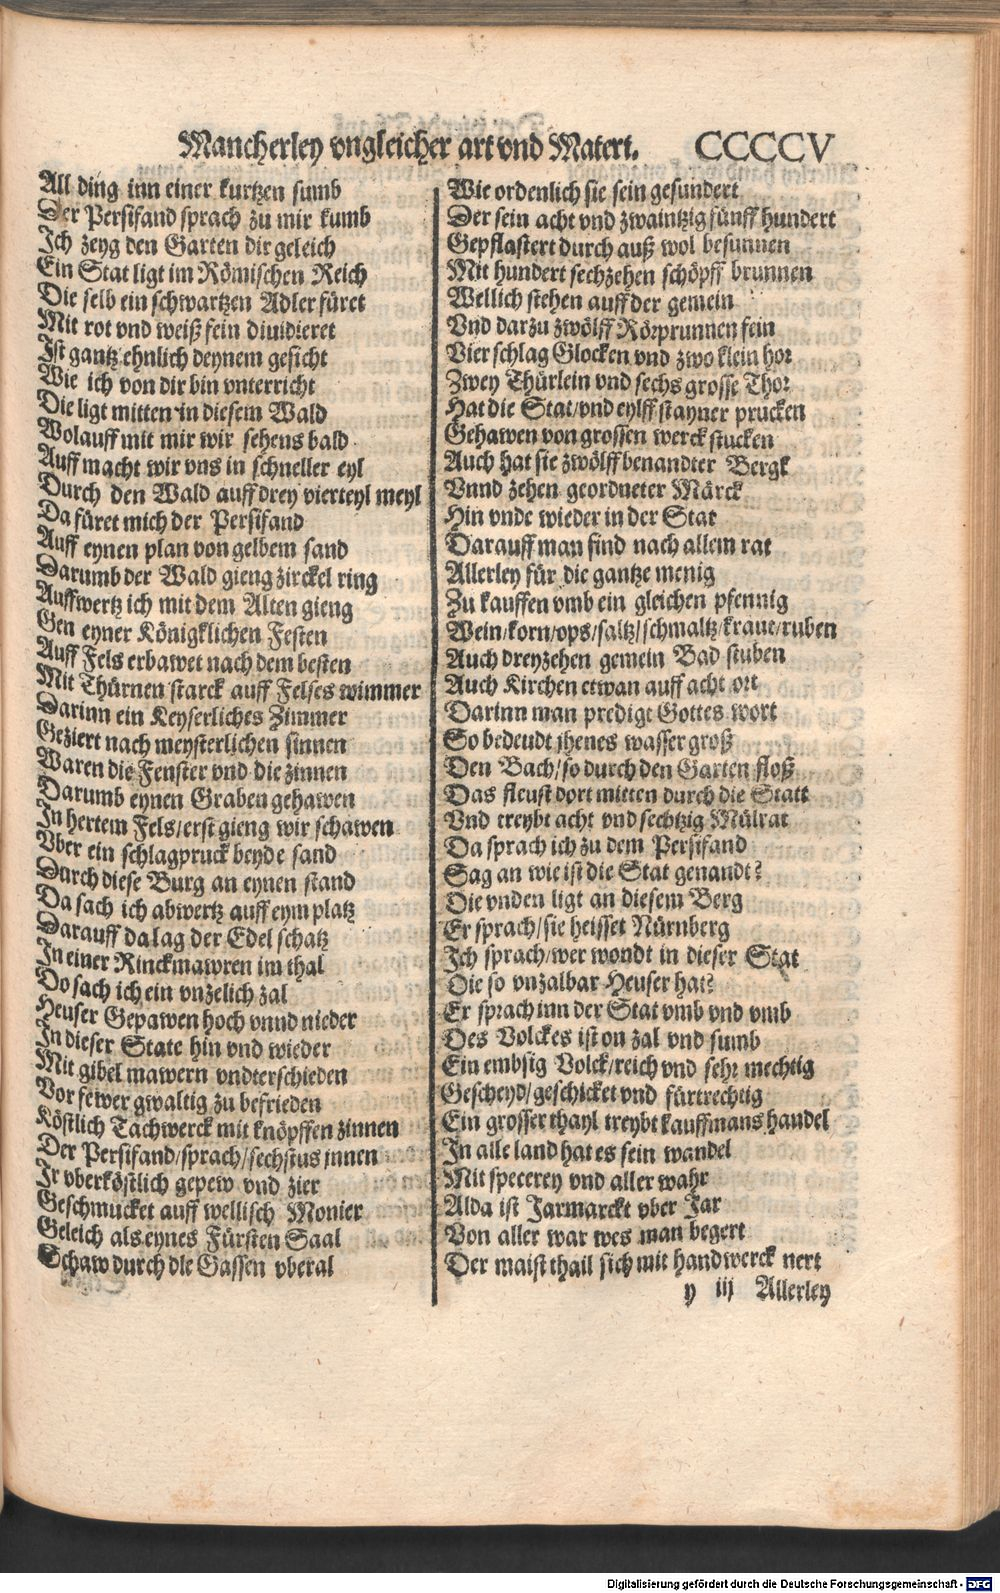 Mancherley vngleicher art vnd Materi. CCCCV
All ding inn einer kurtzen sumb
Der Persifand sprach zu mir kumb
Ich zeyg den Garten dir geleich
Ein Stat ligt im Römischen Reich
Die selb ein schwartzen Adler füret
Mit rot vnd weiß fein diuidieret
Ist gantz ehnlich deynem gesicht
Wie ich von dir bin vnterricht
Die ligt mitten in diesem Wald
Wolauff mit mir wir sehens bald
Auff macht wir vns in schneller eyl
Durch den Wald auff drey vierteyl meyl
Da füret mich der Persifand
Auff eynen plan von gelbem sand
Darumb der Wald gieng zirckel ring
Auffwertz ich mit dem Alten gieng
Gen eyner Königklichen Festen
Auff Fels erbawet nach dem besten
Mit Thürnen starck auff Felses wimmer
Darinn ein Keyserliches Zimmer
Geziert nach meysterlichen sinnen
Waren die Fenster vnd die zinnen
Darumb eynen Graben gehawen
In hertem Fels/erst gieng wir schawen
Vber ein schlagpruck beyde sand
Durch diese Burg an eynen stand
Da sach ich abwertz auff eym platz
Darauff da lag der Edel schatz
In einer Rinckmawren im thal
Do sach ich ein vnzelich zal
Heuser Gepawen hoch vnnd nieder
In dieser State hin vnd wieder
Mit gibel mawern vndterschieden
Vor fewer gwaltig zu befrieden
Köstlich Tachwerck mit knöpffen zinnen
Der Persifand/sprach/sechstus jnnen
Ir vberköstlich gepew vnd zier
Geschmucket auff wellisch Monier
Geleich als eynes Fürsten Saal
Schaw durch die Gassen vberal
Wie ordenlich sie sein gesundert
Der sein acht vnd zwaintzig fünff hundert
Gepflastert durch auß wol besunnen
Mit hundert sechzehen schöpff brunnen
Wellich stehen auff der gemein
Vnd darzu zwölff Rörprunnen fein
Vier schlag Glocken vnd zwo klein hor
Zwey Thürlein vnd sechs grosse Thor
Hat die Stat/vnd eylff stayner prucken
Gehawen von grossen werck stucken
Auch hat sie zwölff benandter Bergk
Vnnd zehen geordneter Märck
Hin vnde wieder in der Stat
Darauff man find nach allem rat
Allerley für die gantze menig
Zu kauffen vmb ein gleichen pfennig
Wein/korn/ops/saltz/schmaltz/kraut/ruben
Auch dreyzehen gemein Bad stuben
Auch Kirchen etwan auff acht ort
Darinn man predigt Gottes wort
So bedeudt jhenes wasser groß
Den Bach/so durch den Garten floß
Das fleust dort mitten durch die Statt
Vnd treybt acht vnd sechtzig Mülrat
Da sprach ich zu dem Persifand
Sag an wie ist die Stat genandt?
Die vnden ligt an diesem Berg
Er sprach/sie heisset Nürnberg
Ich sprach/wer wondt in dieser Stat
Die so vnzalbar Heuser hat?
Er sprach inn der Stat vmb vnd vmb
Des Volckes ist on zal vnd sumb
Ein embsig Volck/reich vnd sehr mechtig
Gescheyd/geschicket vnd fürtrechtig
Ein grosser thayl treybt kauffmans handel
In alle land hat es sein wandel
Mit specerey vnd aller wahr
Alda ist Jarmarckt vber Jar
Von aller war wes man begert
Der maist thail sich mit handwerck nert
y iij Allerley
Digitalisierung gefördert durch die Deutsche Forschungsgemeinschaft - DFG